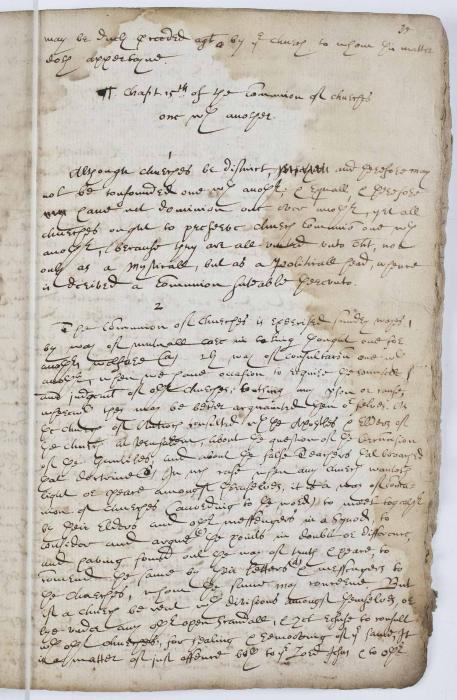 37
may be duely proceeded agt by ye church to whom the matter
doth appertayne
Chapt 15th of the Communion of churches
one wth another.
1
Although churches be distinct, and therefore may
not be confounded one wth anothr, & equall, & therefore
have not dominion one over anothr, yet all
churches ought to preserve church communio one wth
anothr, because they are all united unto Cht, not
only as a mysticall, but as a politicall head, whence
is derived a communion suteable thereunto.
2
The Communion of churches is exercised sundry wayes,
by way of mutuall care in taking thought one for
anothr welfare 2ly way of consultacon one wth
anothr, when we have occasion to require the
and judgmt of othr churches, touching any pson or cause,
wherein they may be better acquainted then or selves. As
the church of Antioch consulted wth the Apostles & Elders of
the church at Jerusalem, about the question of the circumcision
of the Gentiles and about the false Teachers that broached
that doctrine. In wch case, when any church wanteth
light or peace amongst themselves, it is a way of com
munion of churches (according to the word) to meet togethr
by their Elders and othr messengers in a Synod, to
consider and argue the points in doubt or difference,
and having found out the way of truth & peace, to
comend the same by their letters & messengers to
the churches, whom the same may concerne But
if a church be rent wth divisions amongst themselves, or
lye under any open scandall, & yet refuse to consult
wth othr churches, for healing & removing of ye same, It
is a matter of just offence both to ye Lord Jesus, & to othr